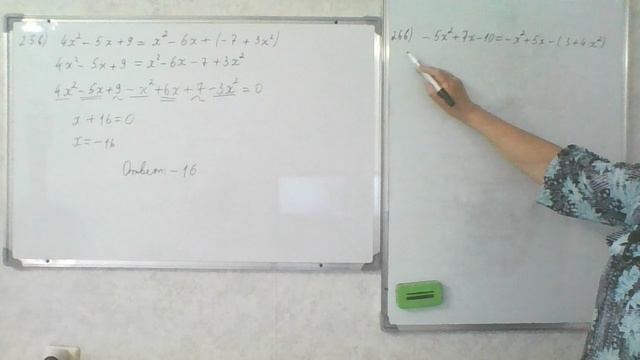 256) 4x² - 5x + 9 = x² - 6x + (-7 + 3x²)
4x² - 5x + 9 = x² - 6x - 7 + 3x²
4x² - 5x + 9 - x² + 6x + 7 - 3x² = 0
x + 16 = 0
x = -16
Ответ: -16
266) - 5x² + 7x - 10 = - x² + 5x - (3 + 4x²)